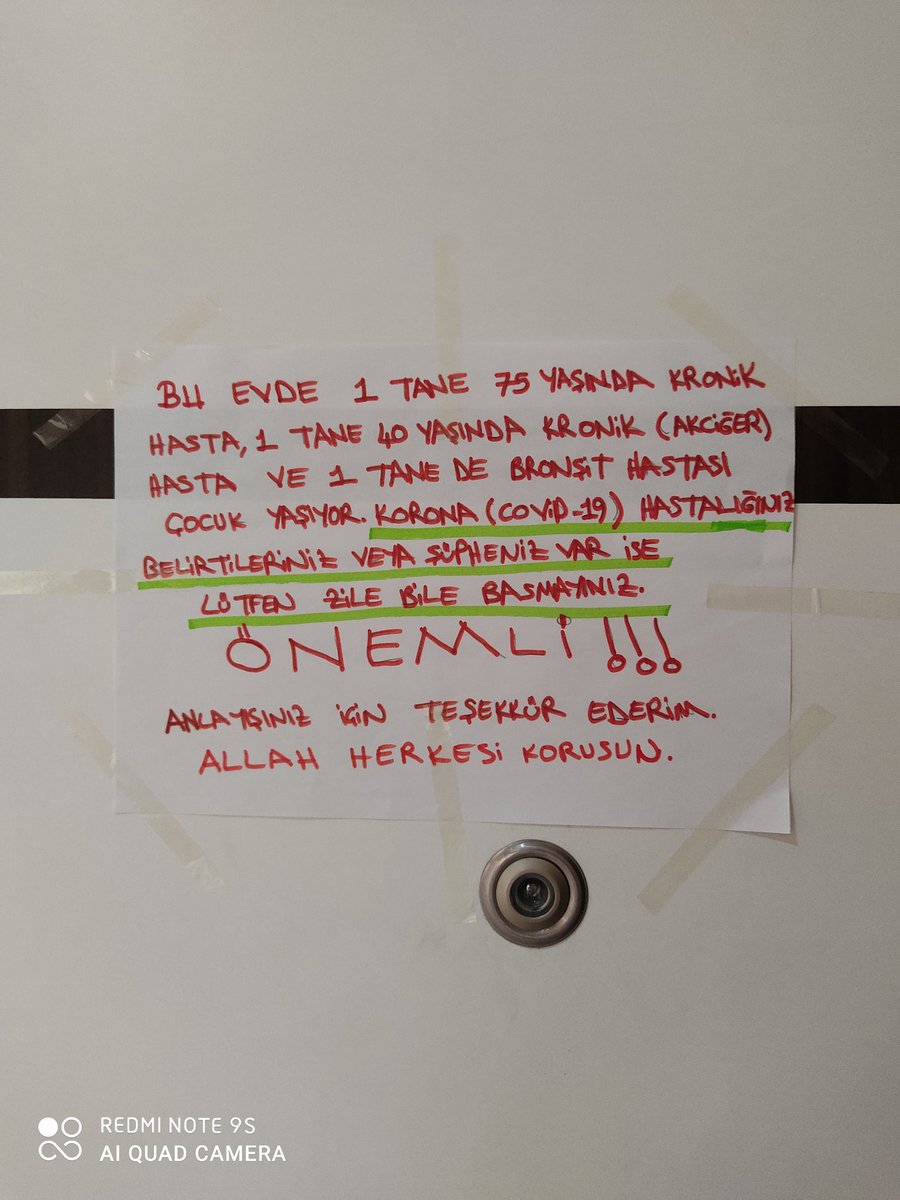 BU EVDE 1 TANE 75 YAŞINDA KRONİK
HASTA, 1 TANE 40 YAŞINDA KRONİK (AKCİĞER)
HASTA VE 1 TANE DE BRONŞİT HASTASI
ÇOCUK YAŞIYOR. KORONA (COVİD-19) HASTALIĞINIZ
BELİRTİLERİNİZ VEYA ŞÜPHENİZ VAR İSE
LÜTFEN ZİLE BİLE BASMAYINIZ.
ÖNEMLİ !!!
ANLAYIŞINIZ İÇİN TEŞEKKÜR EDERİM.
ALLAH HERKESİ KORUSUN.
REDMI NOTE 9S
AI QUAD CAMERA